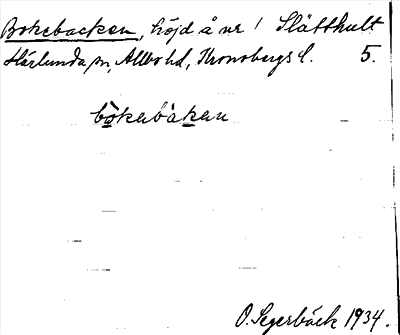 Bokebacken, höjd å nr 1 Slätthult
Härlunda sn, Allbo hd, Kronobergs l. 5.
bòkabàkan
O. Segerbäck 1934.